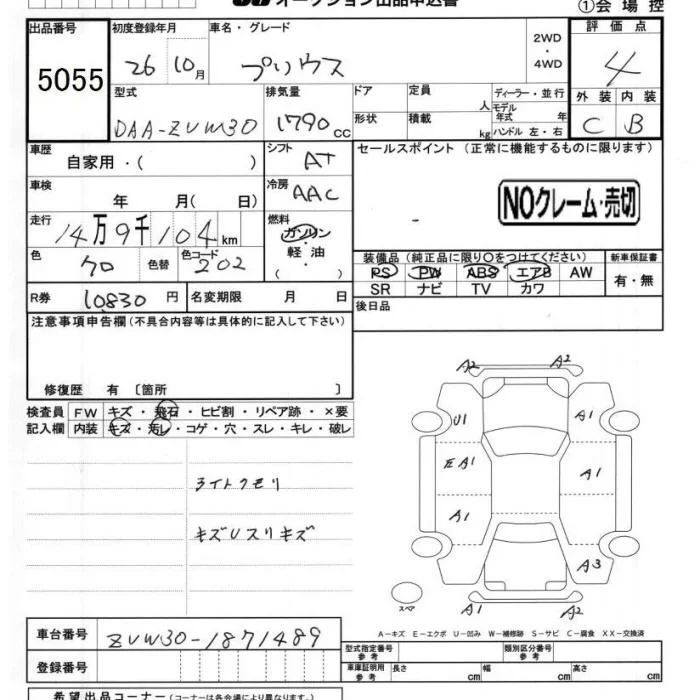 オークション出品申込書
①会場控
出品番号
5055
初度登録年月
26 10月
車名・グレード
プリウス
2WD
・
4WD
評価点
4
外装 内装
C B
型式
DAA-ZVW30
排気量
1790cc
ドア
形状
定員 人
積載 kg
ディーラー・並行
モデル年式 年
ハンドル 左・右
車歴
自家用・( )
シフト
AT
車検
年 月( 日)
冷房
AAC
走行
14万9千104km
燃料
ガソリン
・
軽油
( ・ )
色
クロ
色替
色コード
202
R券
10830円
名変期限 月 日
セールスポイント(正常に機能するものに限ります)
NOクレーム・売切
装備品(純正品に限り○をつけてください)
PS PW ABS エアB AW
SR ナビ TV カワ
新車保証書
有・無
後日品
注意事項申告欄(不具合内容等は具体的に記入して下さい)
修復歴 有〔箇所 〕
検査員記入欄
FW キズ・飛石・ヒビ割・リペア跡・×要
内装 キズ・汚レ・コゲ・穴・スレ・キレ・破レ
ライトクモリ
キズUスリキズ
A2 A2
U1 A1
E A1 A1
A1
A3
スペア
A1 A2
A-キズ E-エクボ U-凹み W-補修跡 S-サビ C-腐食 XX-交換済
車台番号
ZVW30-1871489
登録番号
型式指定番号 参考
類別区分番号 参考
車庫証明用 参考
長さ cm 幅 cm 高さ cm
希望出品コーナー(コーナーは各会場により異なります。)